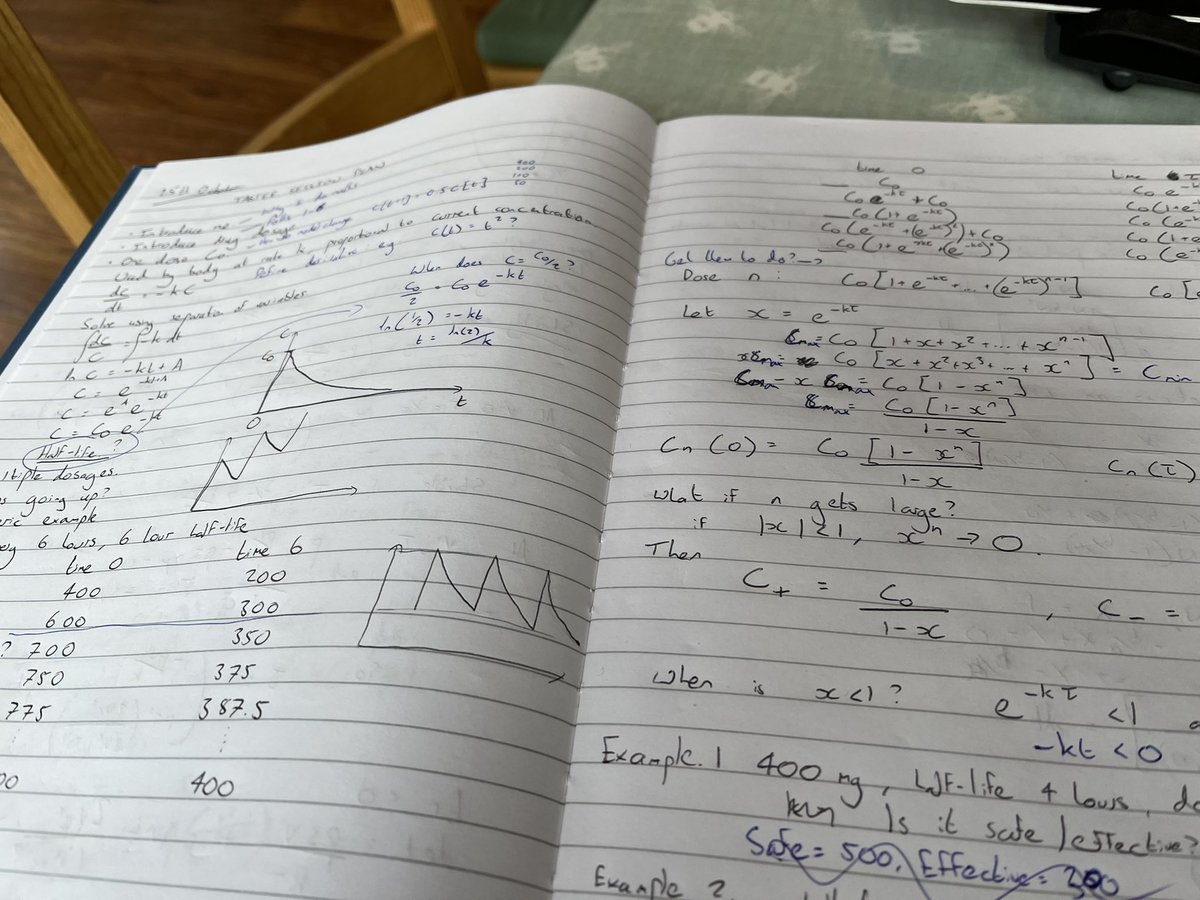 TASTER SESSION PLAN
400
200
100
50
· Introduce me
· Introduce drug dosage
c(t+1) = 0.5 c[t]
· One dose C₀
Used by body at rate k proportional to current concentration
dc/dt = -kC
Define derivative eg c(t) = t² ?
Solve using separation of variables
∫dc/C = ∫-k dt
ln C = -kt + A
C = e^(-kt+A)
C = e^A e^(-kt)
C = C₀ e^(-kt)
Half-life?
When does C = C₀/2 ?
C₀/2 = C₀ e^(-kt)
ln(1/2) = -kt
t = ln(2)/k
C₀
t
O
ltiple dosages.
going up?
example
6 hours, 6 hour half-life
time 0 time 6
400 200
600 300
? 700 350
750 375
775 387.5
⋮ ⋮
00 400
time 0
C₀
C₀e^(-kτ) + C₀
C₀(1+e^(-kτ))
C₀(e^(-kτ)+(e^(-kτ))²)+C₀
C₀(1+e^(-kτ)+(e^(-kτ))²)
time τ
C₀ e^(-k
C₀(1+e^(-
C₀(e^(-
C₀(1+
C₀(e^(-
Get them to do? →
Dose n: C₀[1+e^(-kτ)+...+(e^(-kτ))^(n-1)] C₀[
Let x = e^(-kτ)
= C₀[1+x+x²+...+x^(n-1)]
= C₀[x+x²+x³+...+x^n] = Cmin
= C₀[1-x^n]
= C₀[1-x^n]/(1-x)
Cₙ(0) = C₀[1-x^n]/(1-x) Cₙ(τ)
What if n gets large?
if |x|<1, x^n → 0.
Then
C₊ = C₀/(1-x) , C₋ =
When is x<1? e^(-kτ) <1
-kt < 0
Example. 1 400 mg, half-life 4 hours, do
Is it safe/effective?
Safe = 500, Effective =
Example 2.